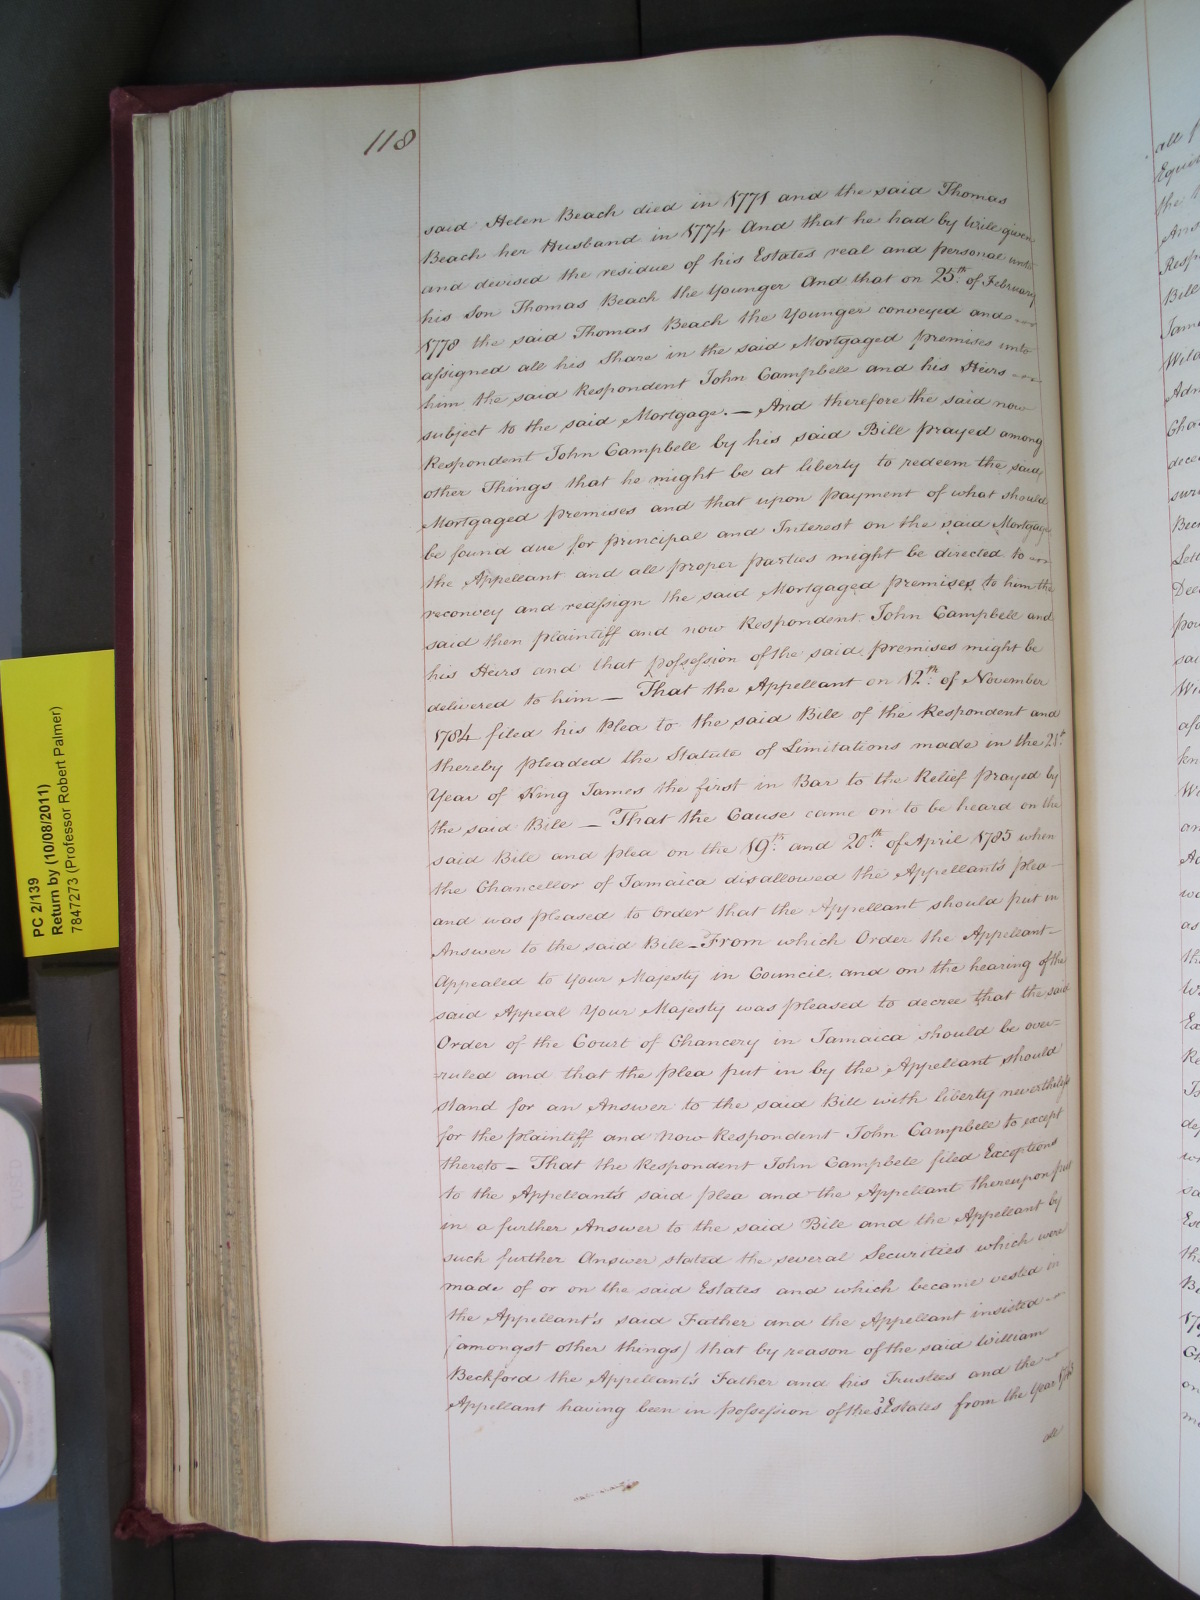 PC 2/139
Return by (10/08/2011)
7847273 (Professor Robert Palmer)
118
said Helen Beach died in 1771 and the said Thomas
Beach her Husband in 1774 And that he had by Will given
and devised the residue of his Estates real and personal unto
his Son Thomas Beach the Younger And that on 25th. of February
1778 the said Thomas Beach the Younger conveyed and
assigned all his Share in the said Mortgaged premises unto
him the said Respondent John Campbell and his Heirs
subject to the said Mortgage. — And therefore the said now
Respondent John Campbell by his said Bill prayed among
other Things that he might be at liberty to redeem the said
Mortgaged premises and that upon payment of what should
be found due for principal and Interest on the said Mortgage
the Appellant and all proper parties might be directed to
reconvey and reassign the said Mortgaged premises to him the
said then plaintiff and now Respondent John Campbell and
his Heirs and that possession of the said premises might be
delivered to him — That the Appellant on 12th. of November
1784 filed his Plea to the said Bill of the Respondent and
thereby pleaded the Statute of Limitations made in the 21st.
Year of King James the first in Bar to the Relief prayed by
the said Bill — That the Cause came on to be heard on the
said Bill and plea on the 19th. and 20th. of April 1785 when
the Chancellor of Jamaica disallowed the Appellant's plea —
and was pleased to Order that the Appellant should put in
Answer to the said Bill — From which Order the Appellant =
Appealed to Your Majesty in Council and on the hearing of the
said Appeal Your Majesty was pleased to decree that the said
Order of the Court of Chancery in Jamaica should be over=
=ruled and that the plea put in by the Appellant should
stand for an Answer to the said Bill with liberty nevertheless
for the plaintiff and now Respondent John Campbell to except
thereto — That the Respondent John Campbell filed Exceptions
to the Appellant's said plea and the Appellant thereupon put
in a further Answer to the said Bill and the Appellant by
such further Answer stated the several Securities which were
made of or on the said Estates and which became vested in
the Appellant's said Father and the Appellant insisted
(amongst other things) that by reason of the said William
Beckford the Appellant's Father and his Trustees and the
Appellant having been in possession of the sd Estates from the Year
all